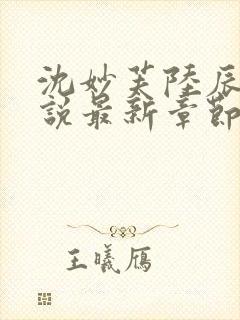 沈妙芙陸辰
說最新章節
王曦鴈